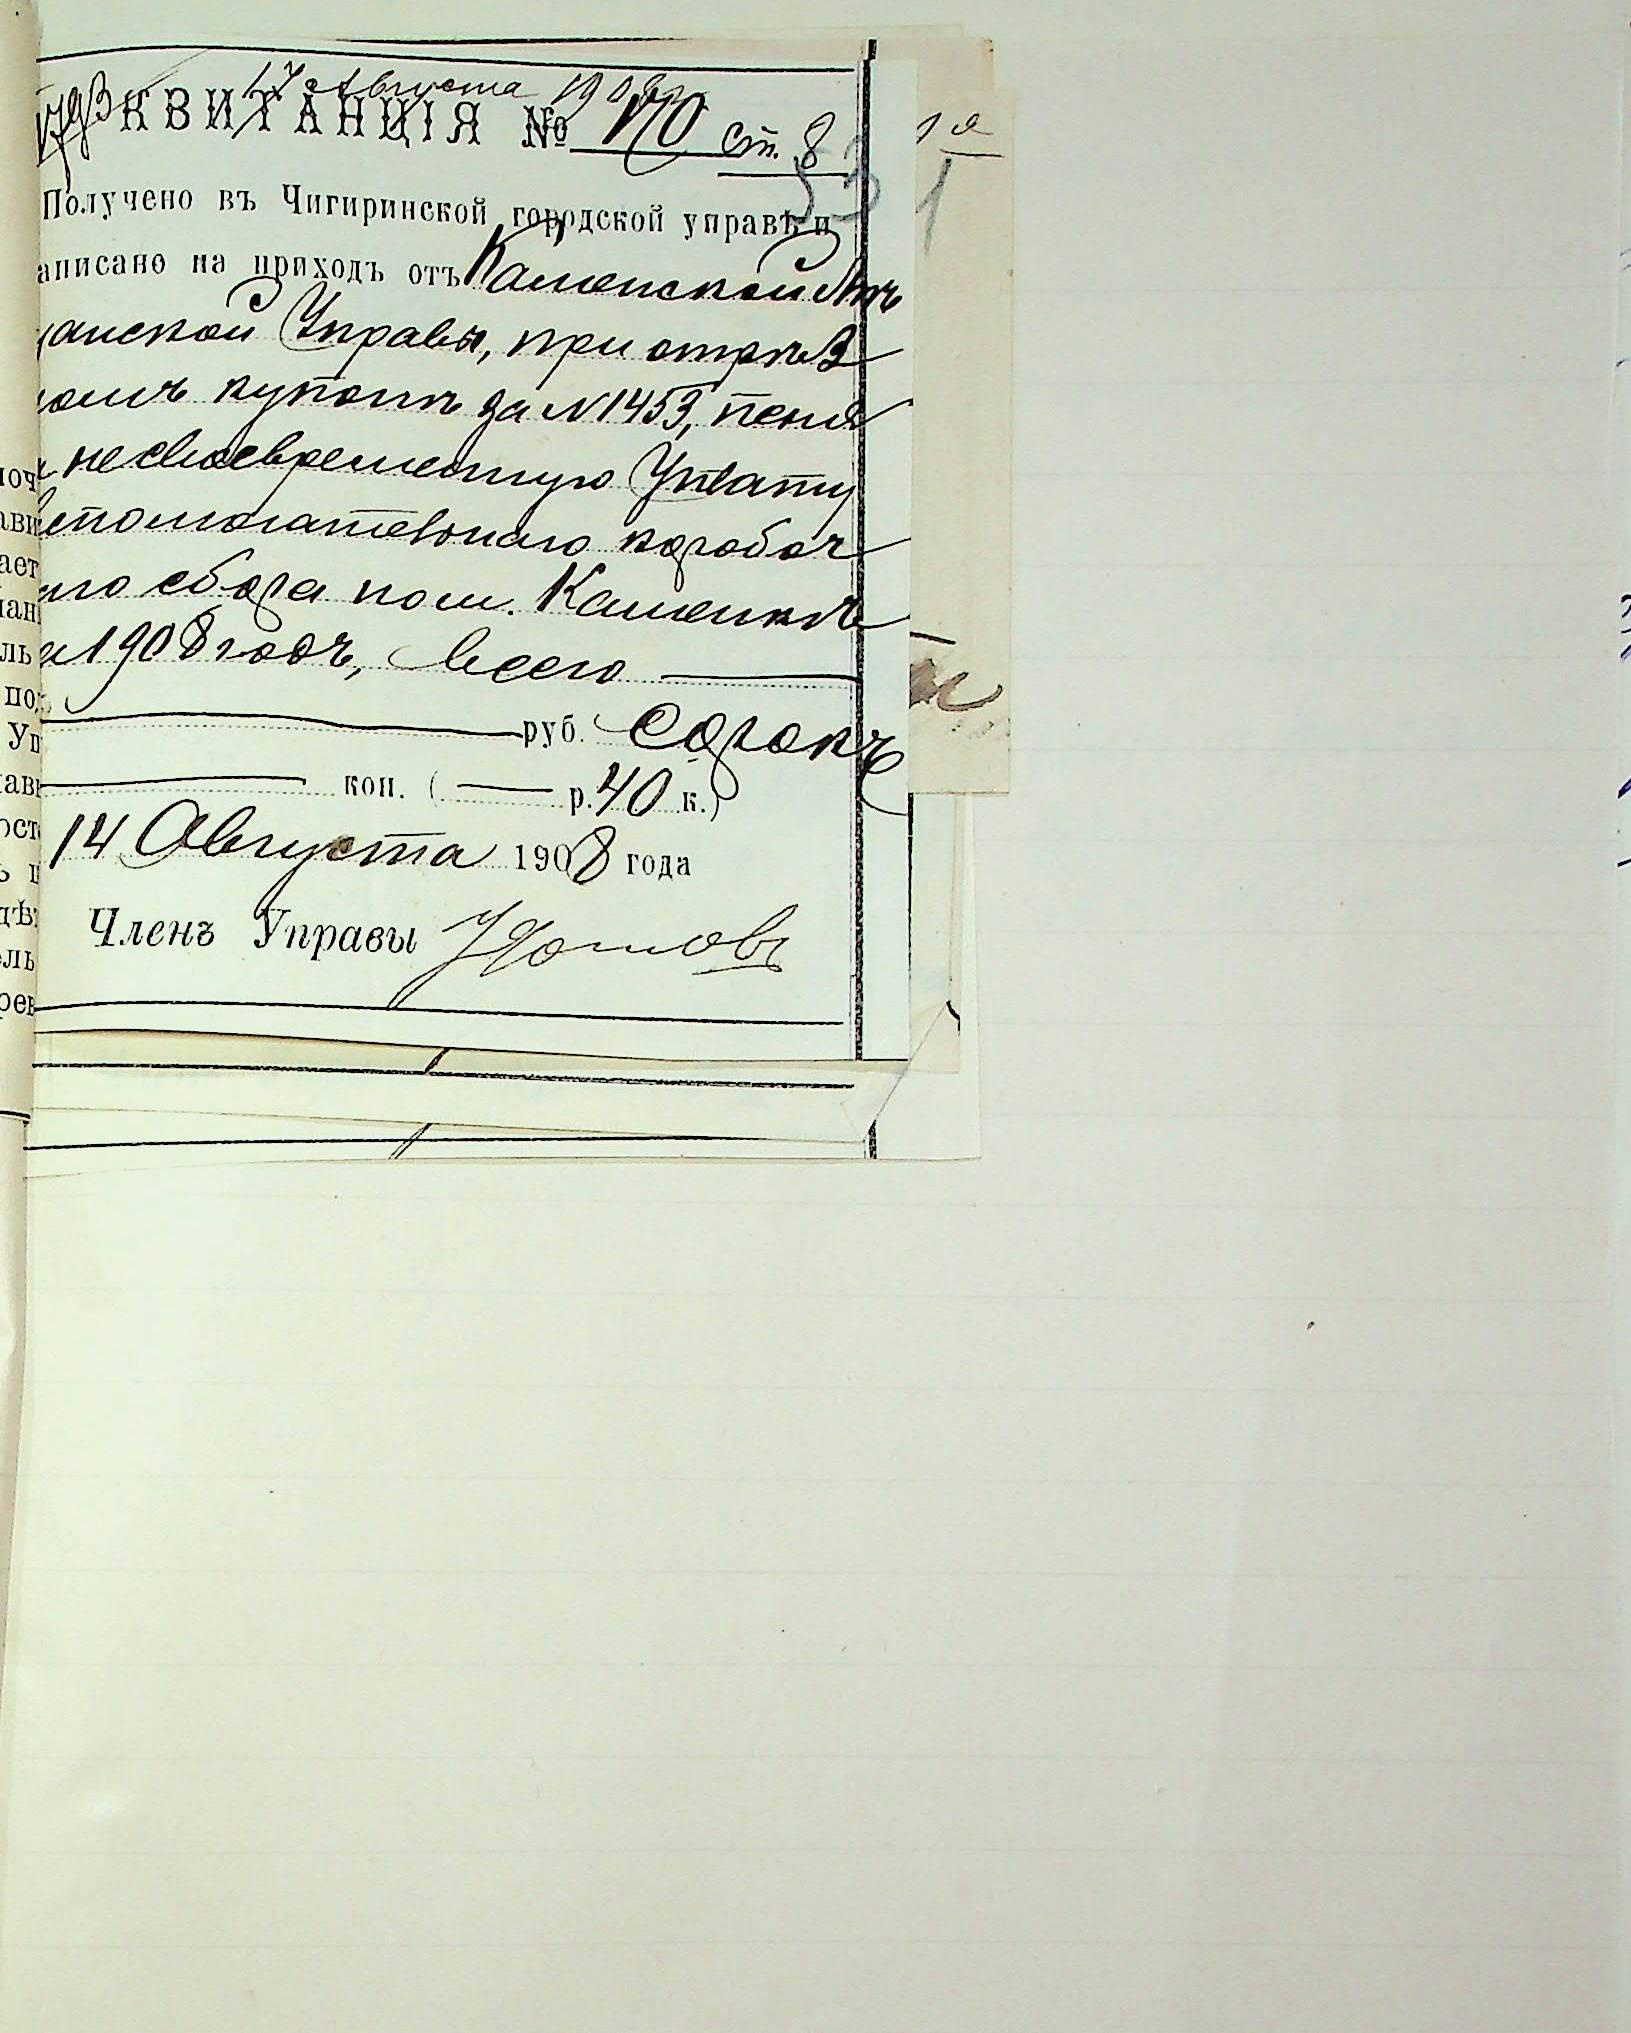 17 Августа 1908
1793 КВИТАНЦІЯ № 170 ст. 8
531
Получено въ Чигиринской городской управѣ и
аписано на приходъ отъ Каменской Мѣ
анской Управы, при отрѣз
омъ купонѣ за N 1453, пеня
а несвоевременную Уплату
вспомогательнаго коробоч
аго сбора по м. Каменкѣ
а 1908 годъ, всего
руб. сорокъ
коп. ( р. 40 к.)
14 Августа 1908 года
Членъ Управы